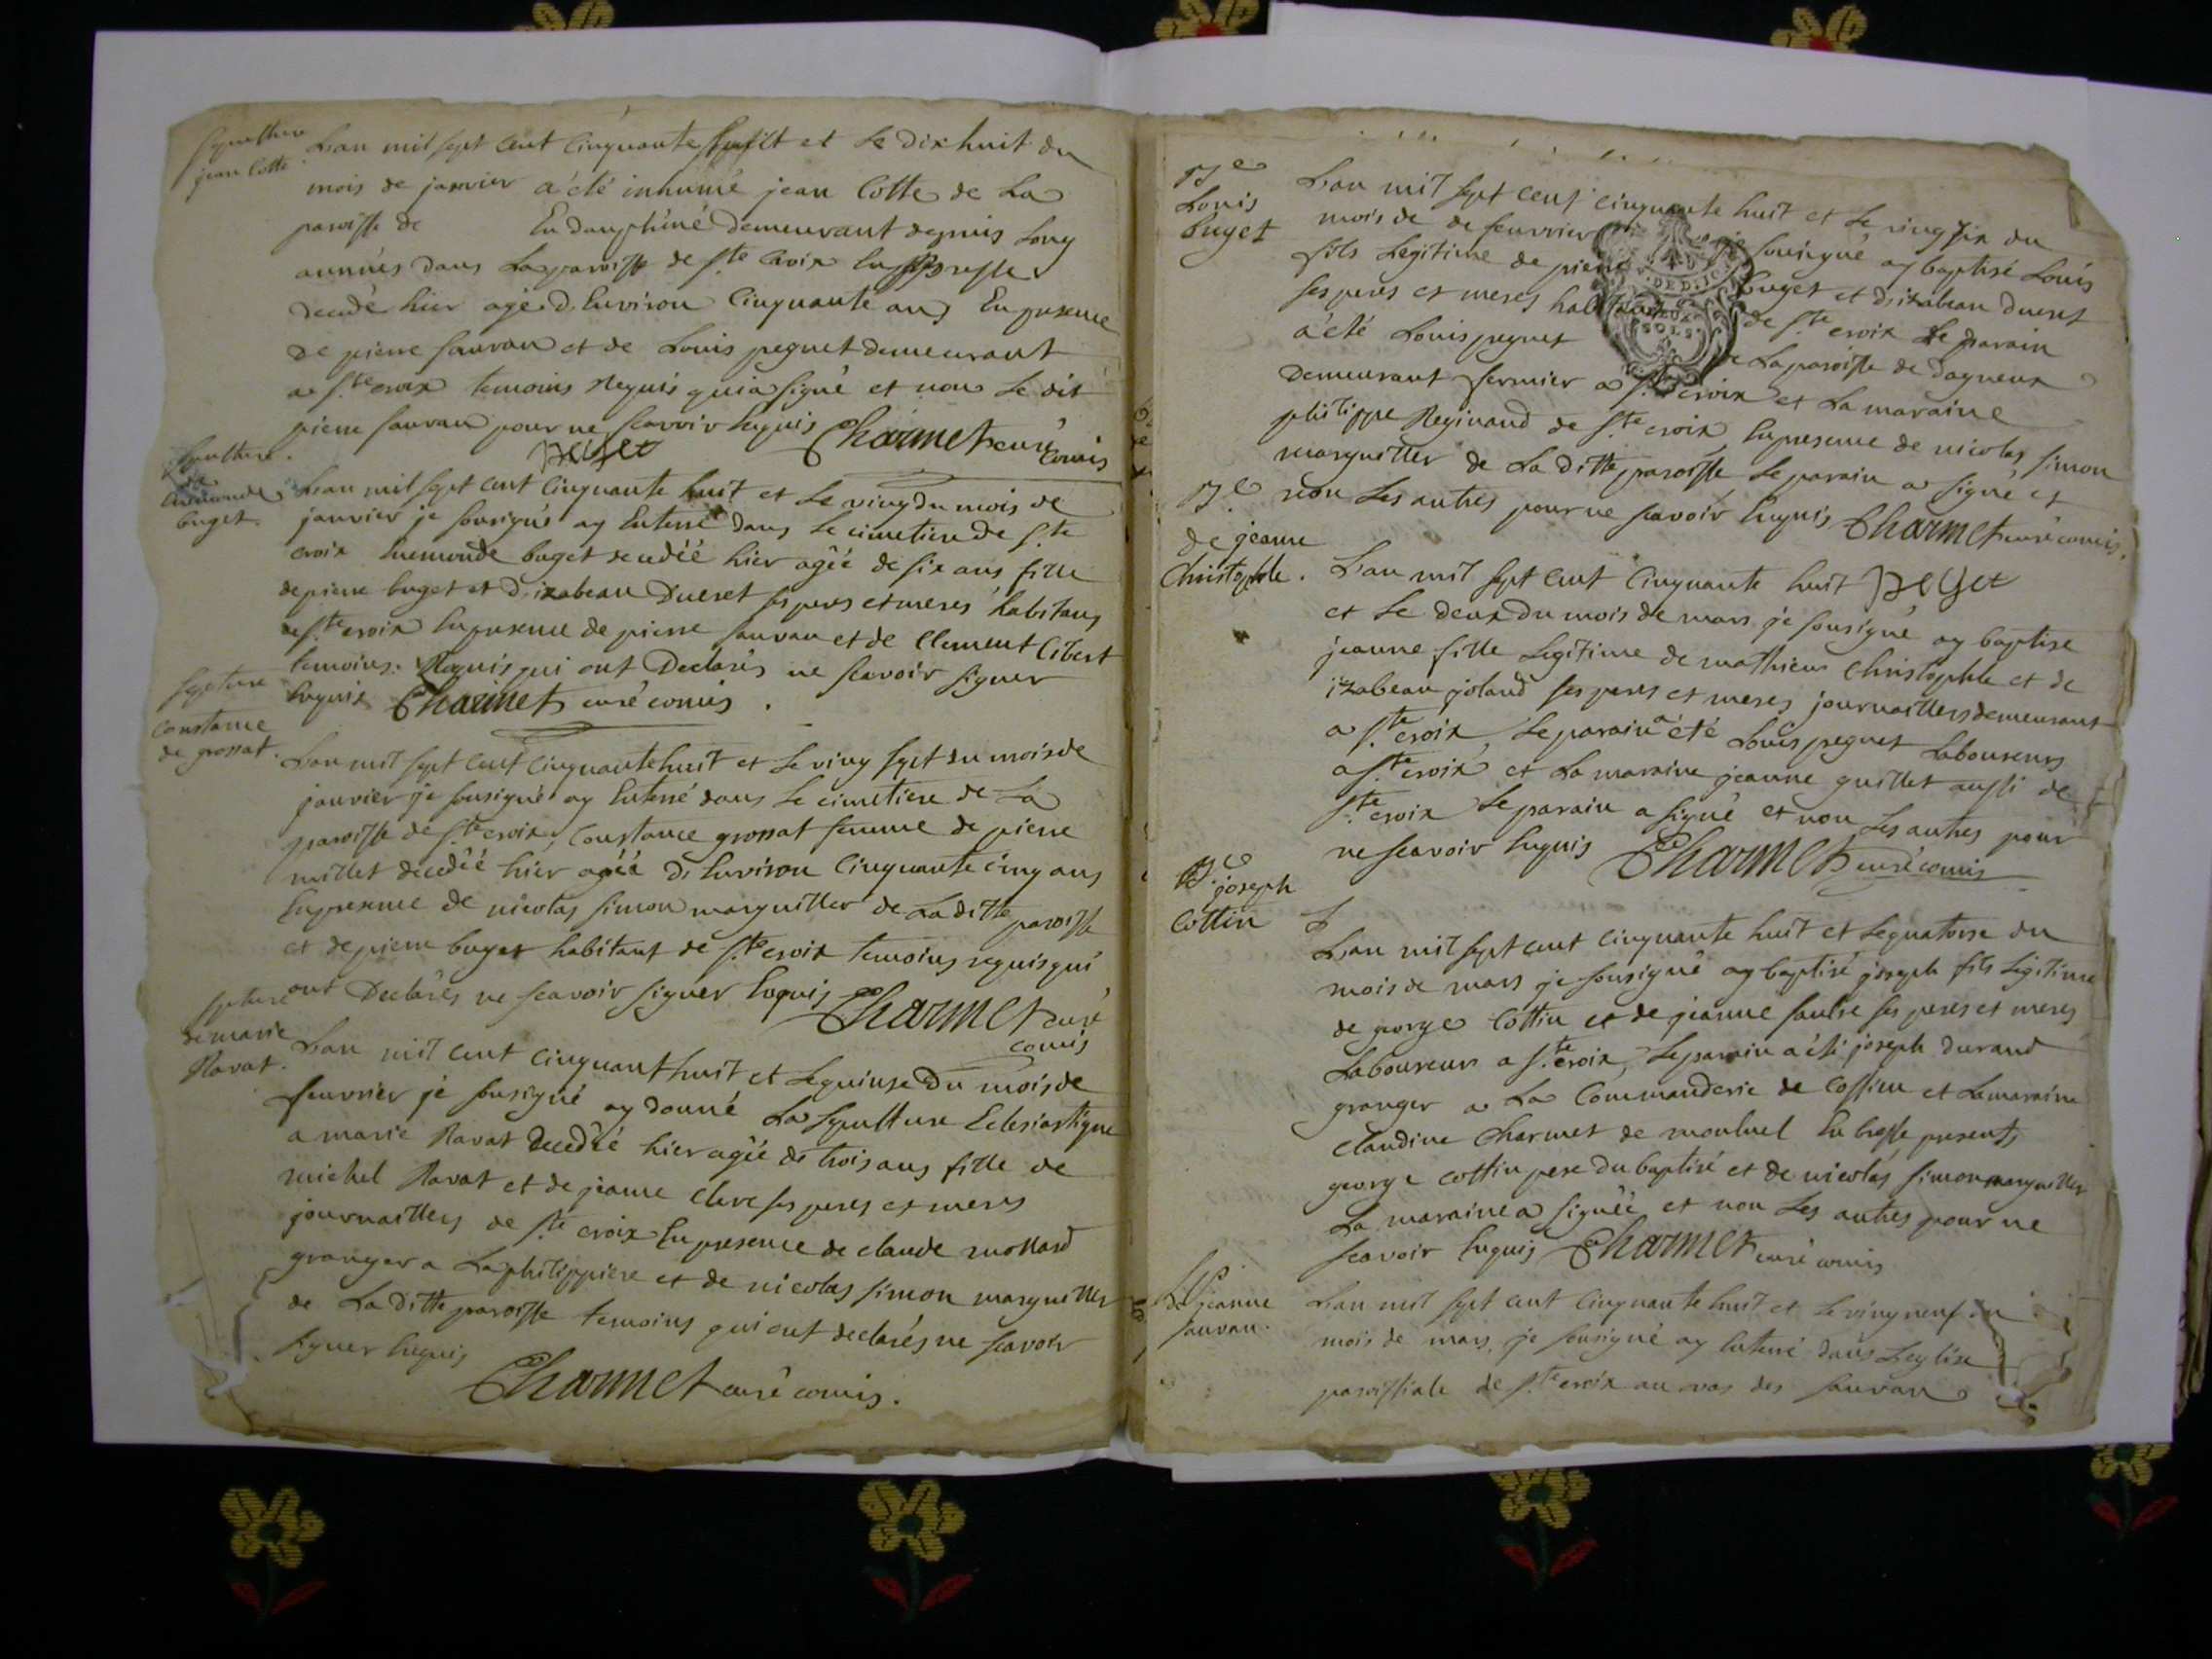 Sepulture
jean Cotte
L'an mil sept cent cinquante huilt et le dix huit du
mois de janvier a été inhumé jean Cotte de La
paroisse de En dauphiné demeurant depuis long
années dans La paroisse de Ste Croix
decedé hier agé d'Environ Cinquante ans En presence
de pierre sauvan et de Louis peguet demeurant
a Ste croix temoins Requis qui a signé et non Le dit
pierre sauvan pour ne scavoir Enquis Charmet curé
peget comis
sepulture
de
Enemonde
buget.
L'an mil sept cent Cinquante huit et Le ving du mois de
janvier je sousigné ay Enterré dans Le cimetiere de Ste
croix Enemonde buget decedéé hier agéé de six ans fille
de pierre buget et d'izabeau Ducret ses peres et meres habitans
de Ste croix En presence de pierre sauvan et de Clement Cibert
temoins. Requis qui ont Declarés ne scavoir signer
Enquis Charmet curé comis.
septure
Constance
de grossat.
L'an mil sept cent Cinquante huit et Le ving sept du mois de
janvier je sousigné ay Enterré dans Le cimetiere de La
paroisse de Ste croix, Constance grossat femme de pierre
millet decedéé hier agéé d'Environ Cinquante cinq ans
En presence de nicolas simon marguiller de La ditte paroisse
et de pierre buget habitant de Ste croix temoins requis qui
ont Declarés ne scavoir signer Enquis Charmet curé
comis
spture
de marie
Ravat.
L'an mil cent cinquant huit et Le quinse Du mois de
feuvrier je sousigné ay donné La sepulture Eclesiastique
a marie Ravat Decedéé hier agéé de trois ans fille de
michel Ravat et de jeanne Clere ses peres et meres
journaillers de Ste croix En presence de claude mollard
granger a La philippiere et de nicolas simon marguiller
de La ditte paroisse temoins qui ont declarés ne scavoir
signer Enquis
Charmet curé comis.
Be
Louis
buget
L'an mil sept cent cinquante huit et Le ving six du
mois de de feuvrier je sousigné ay baptisé Louis
fils Legitime de pierre buget et d'izabeau ducret
ses peres et meres habitans de Ste croix Le parain
a été Louis peguet de La paroisse de dagneux
Demeurant fermier a Ste croix et La maraine
philippe Reginaud de Ste croix En presence de nicolas simon
marguiller de La ditte paroisse Le parain a signé et
non Les autres pour ne scavoir Enquis Charmet curé comis.
Be
de jeanne
Christophle.
L'an mil sept cent Cinquante huit peget
et Le deux du mois de mars je sousigné ay baptise
jeanne fille Legitime de mathieu Christophle et de
izabeau joland ses peres et meres journaillers demeurant
a Ste croix, Le parain a été Louis peguet Laboureur
a Ste croix et La maraine jeanne guillet aussi de
Ste croix Le parain a signé et non Les autres pour
ne scavoir Enquis Charmet curé comis
Be joseph
Cottin
L'an mil sept cent Cinquante huit et Le quatorse du
mois de mars je sousigné ay baptisé joseph fils Legitime
de george Cottin et de jeanne faulse ses peres et meres
Laboureur a Ste croix, Le parain a été joseph durand
granger a La Commanderie de Cossieu et La maraine
Claudine Charmet de monluel En bresse presents
george Cottin pere du baptisé et de nicolas simon marguiller
La maraine a signéé et non Les autres pour ne
scavoir Enquis Charmet curé comis
de jeanne
sauvan.
L'an mil sept cent cinquante huit et Le ving neuf du
mois de mars, je sousigné ay Enterré dans L'eglise
paroissiale de Ste croix au vas des sauvan
DEUX
SOLS